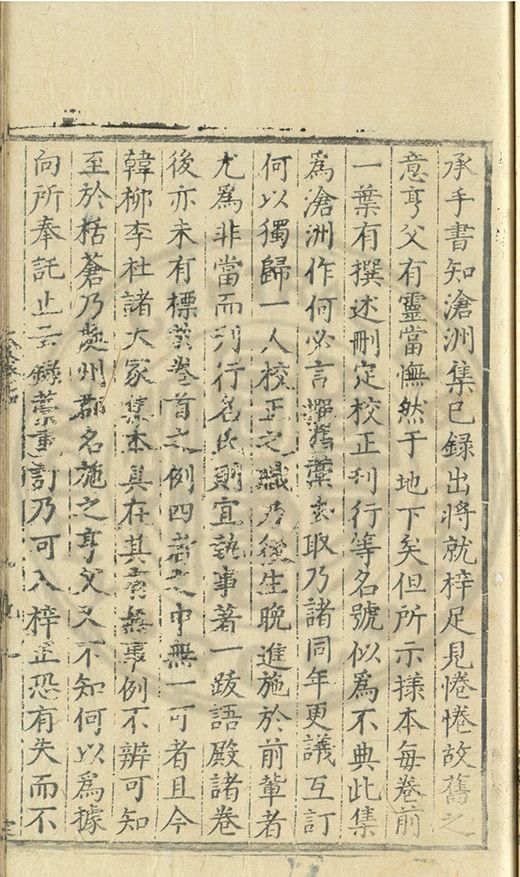 承手書知滄洲集已錄出將就梓足見惓惓故舊之
意亨父有靈當憮然于地下矣但所示㨾本每卷前
一葉有撰述刪定校正刊行等名號似爲不典此集
爲滄洲作何必言撰舊藁去取乃諸同年更議互訂
何以獨歸一人校正之職乃後生晚進施於前輩者
尤爲非當而刊行名氏則宜執事著一跋語殿諸卷
後亦未有標卷首之例四者之中無一可者且今
韓柳李杜諸大家集本具在其有無事例不辨可知
至於栝蒼乃處州郡名施之亨父又不知何以爲據
向所奉託止云錄藁事訂乃可入梓正恐有失而不